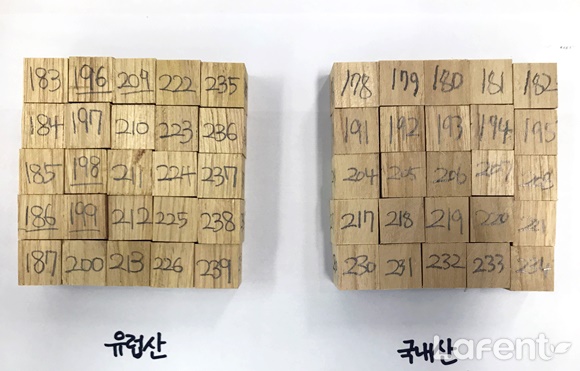 183 196 209 222 235
184 197 210 223 236
185 198 211 224 237
186 199 212 225 238
187 200 213 226 239
유럽산
178 179 180 181 182
191 192 193 194 195
204 205 206 207
217 218 219 220
230 231 232 233
국내산
Lafent